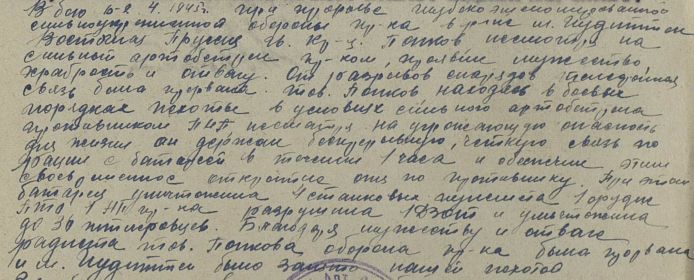 В бою 6-8.4.1945г. при прорыве глубоко эшелонированной
сильно укрепленной обороны пр-ка в р-не м. Иудиттен
Восточная Пруссия гв. кр-ц. Попков несмотря на
сильный артобстрел пр-ком, проявил мужество
храбрость и отвагу. От разрывов снарядов телефонная
связь была прервана. тов. Попков находясь в боевых
порядках пехоты в условиях сильного артобстрела
противником несмотря на угрожающую опасность
для жизни он держал бесперебойную, четкую связь по
рации с батареей в течении 1 часа и обеспечил этим
своевременное открытие огня по противнику. При этом
батарея уничтожила 4 становых пулемета 1 орудие
ПТО 1 НП пр-ка разрушила 1 ДЗОТ и уничтожила
до 30 гитлеровцев. Благодаря мужеству и отваге
радиста тов. Попкова оборона пр-ка была прорвана
и м. Иудиттен было занято нашей пехотой